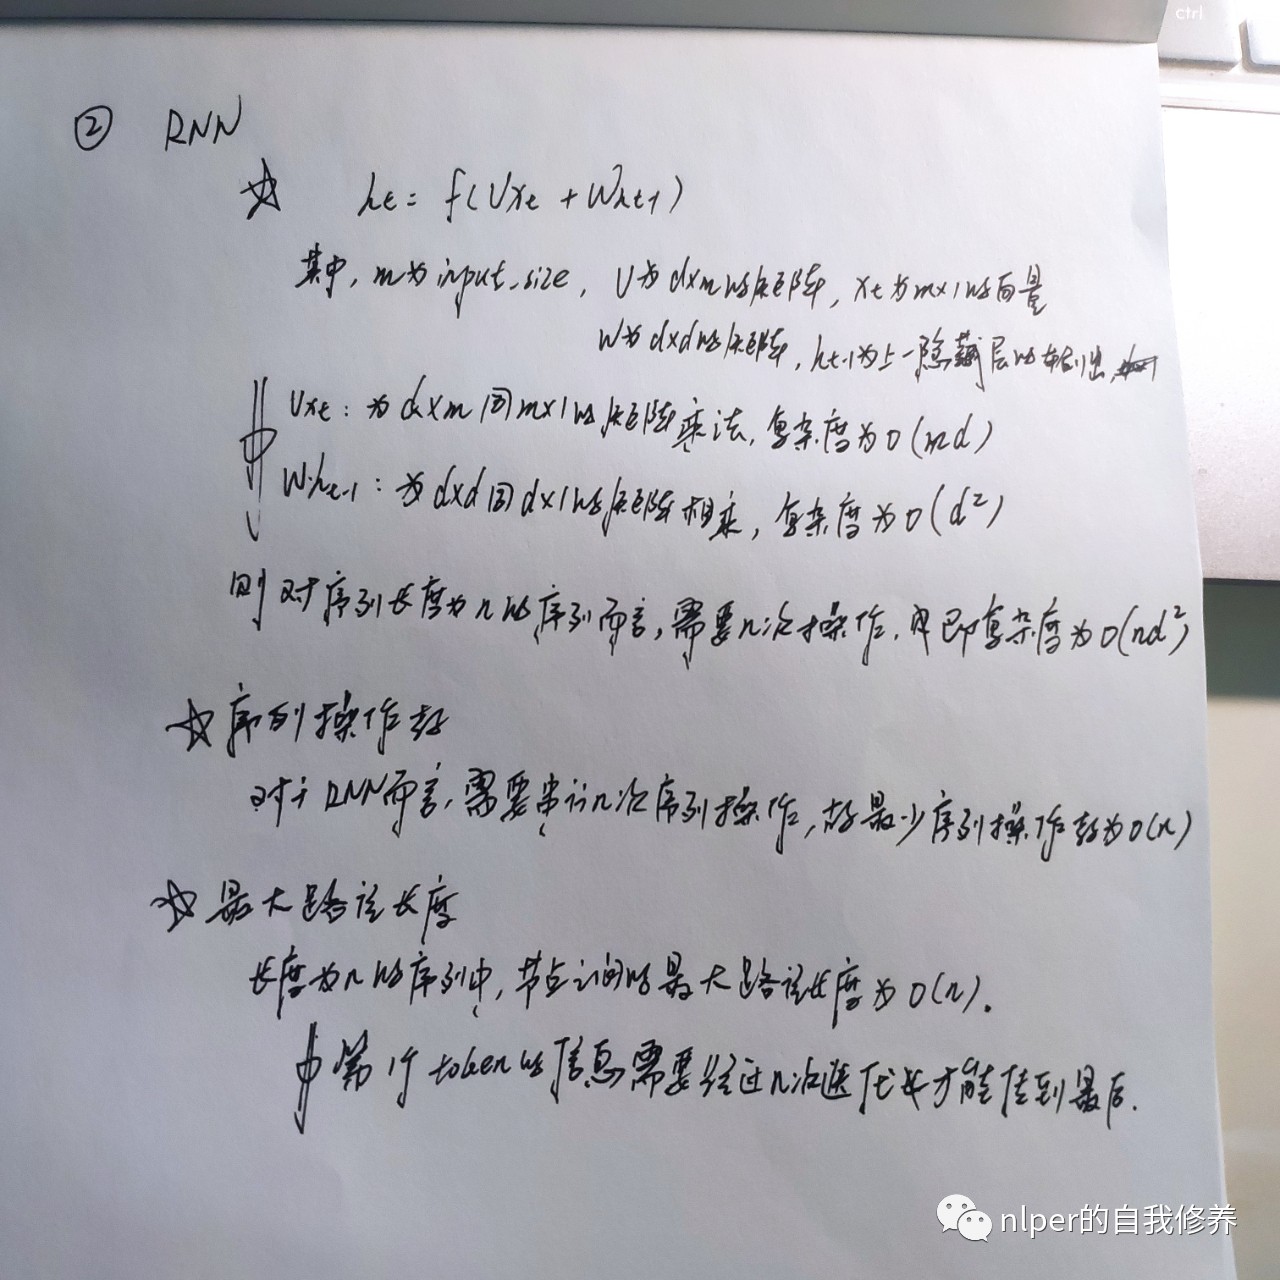 ctrl
② RNN
☆ ht = f(Uxt + Wht-1)
其中, m为input_size, U为d×m的矩阵, xt为m×1的向量
W为d×d的矩阵, ht-1为上一隐藏层的输出
Uxt: 为d×m同m×1的矩阵乘法, 复杂度为O(md)
W·ht-1: 为d×d同d×1的矩阵相乘, 复杂度为O(d²)
则对序列长度为n的序列而言, 需要n次操作, 即复杂度为O(nd²)
☆序列操作数
对于RNN而言, 需要串行n次序列操作, 故最少序列操作数为O(n)
☆最大路径长度
长度为n的序列中, 节点之间的最大路径长度为O(n).
第1个token的信息需要经过n次迭代才能传到最后.
nlper的自我修养